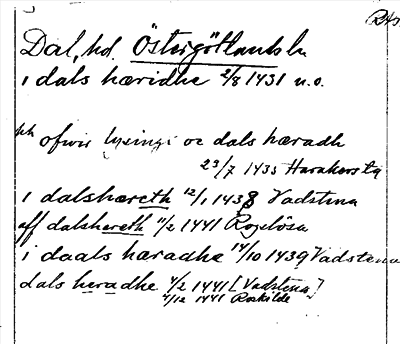 RAs
Dal, hd. Östergötlands l.
i dals hæridhe 2/8 1431 u.o.
ofwir lysingx oc dals hæradh
23/7 1435
i dalshæreth 12/1 1438 Vadstena
aff dalshereth 11/2 1441 Rogslösa
i daals hæradhe 14/10 1439 Vadstena
dals heradhe 4/2 1441 [Vadstena]
4/12 1441 Roskilde